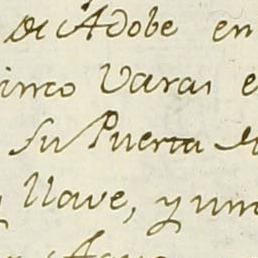 de Adobe en
inco Varas e
su Puerta de
y llave, y una